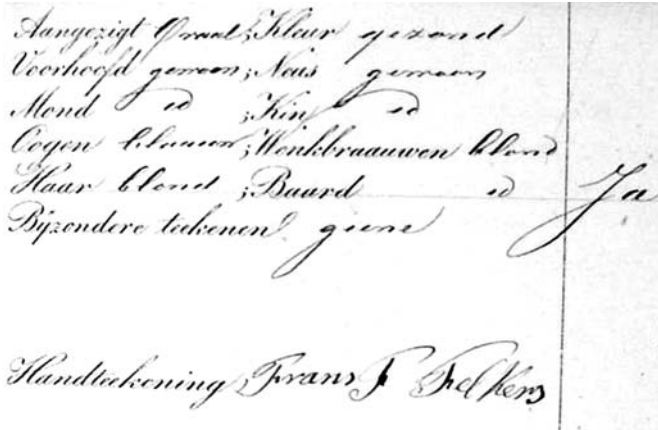 Aangezigt Ovaal; Kleur gezond
Voorhoofd gewoon; Neus gewoon
Mond id; Kin id
Oogen blauw; Wenkbraauwen blond
Haar blond; Baard id
Ja
Bijzondere teekenen geene
Handteekening, Frans F Felkers